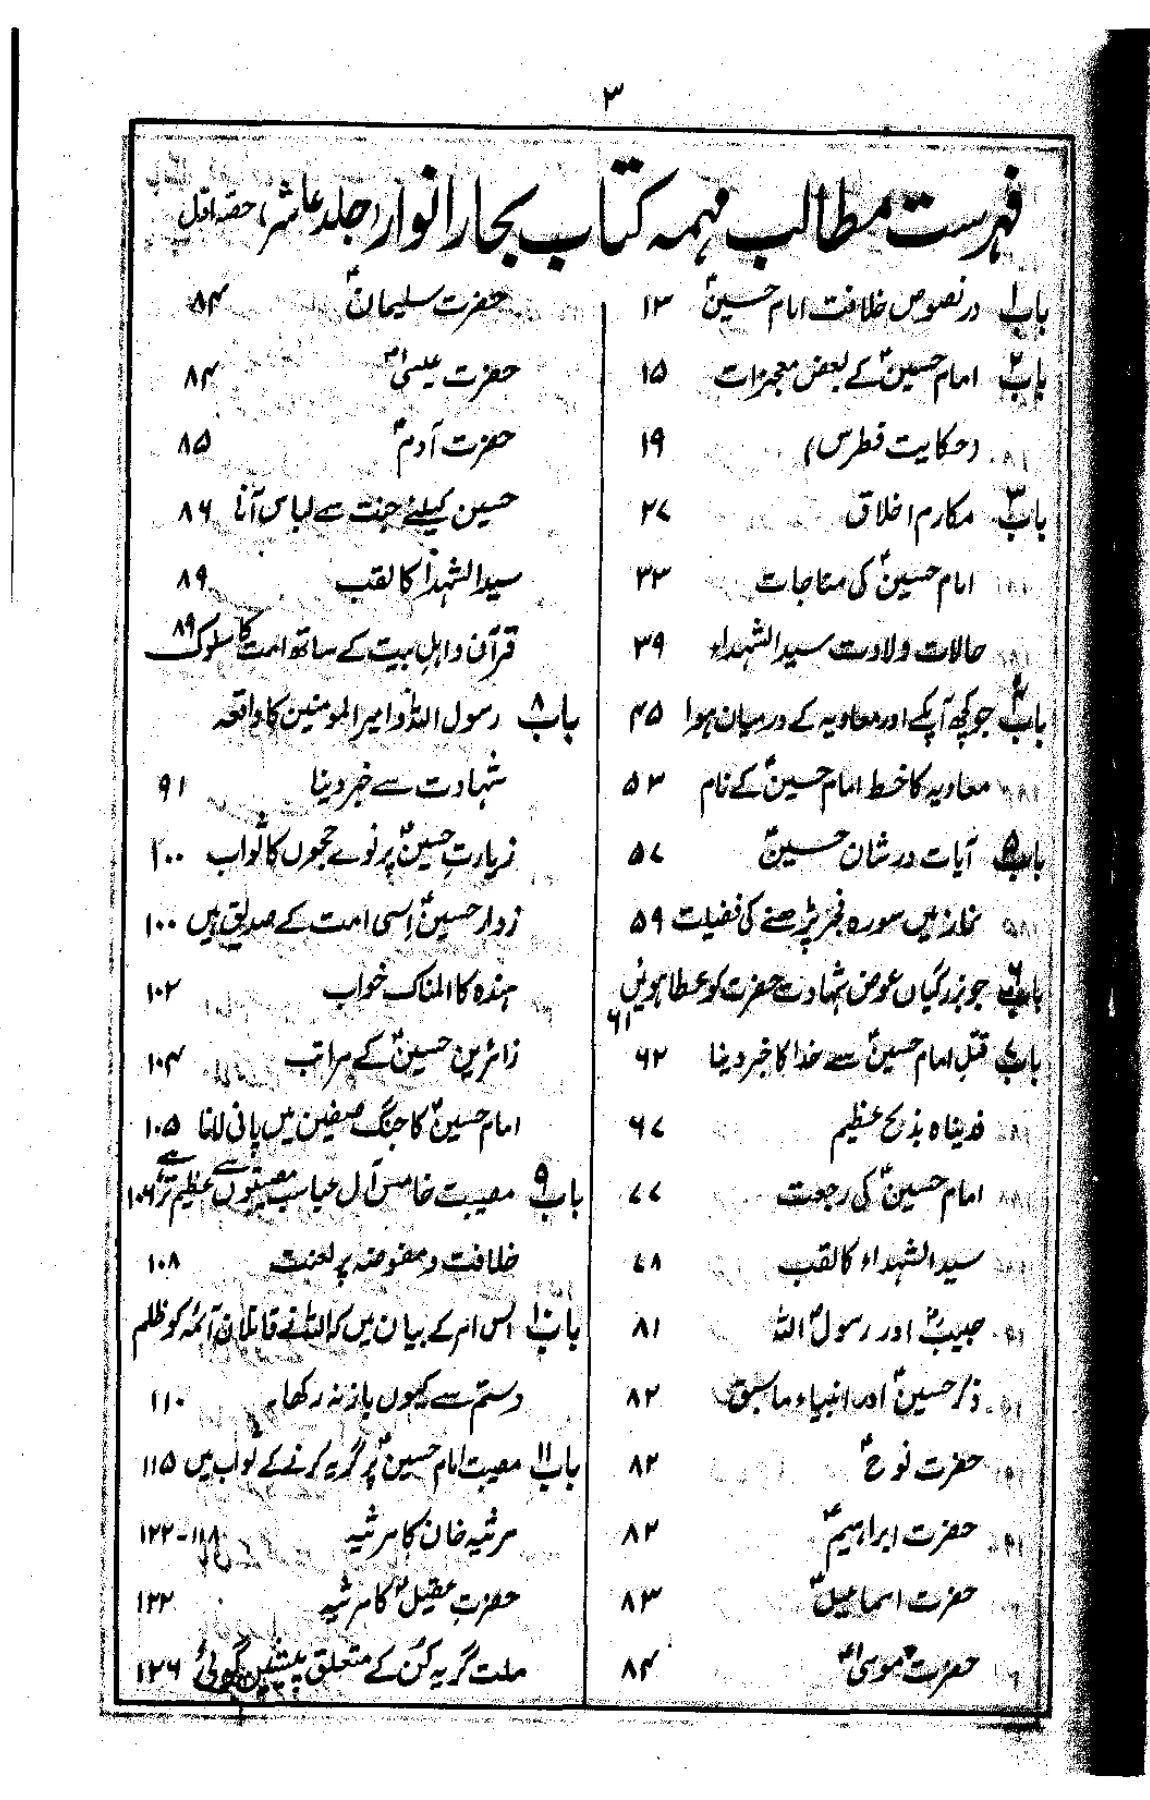 ۳
فہرست مطالب مہمہ کتاب بحار انوار (جلد عاشر) حصہ اول
باب۱ در نصوص خلافت امام حسینؑ ۱۳
باب۲ امام حسینؑ کے بعض معجزات ۱۵
(حکایت فطرس) ۱۹
باب۳ مکارم اخلاق ۲۷
امام حسینؑ کی مناجات ۳۳
حالات ولادت سید الشہداء ۳۹
باب۴ جو کچھ آپکے اور معاویہ کے درمیان ہوا ۴۵
معاویہ کا خط امام حسینؑ کے نام ۵۳
باب۵ آیات در شان حسینؑ ۵۷
نماز میں سورہ فجر پڑھنے کی فضیلت ۵۹
باب۶ جو بزرگیاں عوض شہادت حضرت کو عطا ہوئیں ۶۱
باب۷ قتل امام حسینؑ سے خدا کا خبر دینا ۶۲
فدیناہ بذبح عظیم ۶۷
امام حسینؑ کی رجعت ۷۷
سید الشہداء کا لقب ۷۸
حبیبؑ اور رسولؐ اللہ ۸۱
ذکر حسینؑ اور انبیاء ما سبق ۸۲
حضرت نوحؑ ۸۲
حضرت ابراہیمؑ ۸۲
حضرت اسماعیلؑ ۸۳
حضرت موسیٰؑ ۸۴
حضرت سلیمانؑ ۸۴
حضرت عیسیٰؑ ۸۴
حضرت آدمؑ ۸۵
حسین کیلئے جنت سے لباس آنا ۸۶
سید الشہداء کا لقب ۸۹
قرآن و اہل بیت کے ساتھ امت کا سلوک ۸۹
باب۸ رسول اللہؐ و امیر المومنین کا واقعہ
شہادت سے خبر دینا ۹۱
زیارت حسینؑ پر نوے حجوں کا ثواب ۱۰۰
زوار حسینؑ اسی امت کے صدیق ہیں ۱۰۰
ہندہ کا المناک خواب ۱۰۲
زائرین حسینؑ کے مراتب ۱۰۴
امام حسینؑ کا جنگ صفین میں پانی لانا ۱۰۵
باب۹ مصیبت خامس آل عبا سب مصیبتوں سے عظیم تر ہے ۱۰۶
خلافت و مفوضہ پر لعنت ۱۰۸
باب۱۰ اس امر کے بیان میں کہ اللہ نے قاتلان آئمہ کو ظلم
و ستم سے کیوں باز نہ رکھا۔ ۱۱۰
باب۱۱ مصیبت امام حسینؑ پر گریہ کرنے کے ثواب میں ۱۱۵
مرثیہ خان کا مرثیہ ۱۱۸-۱۲۲
حضرت عقیلؑ کا مرثیہ ۱۲۲
ملت گریہ کن کے متعلق پیشین گوئی ۱۲۶